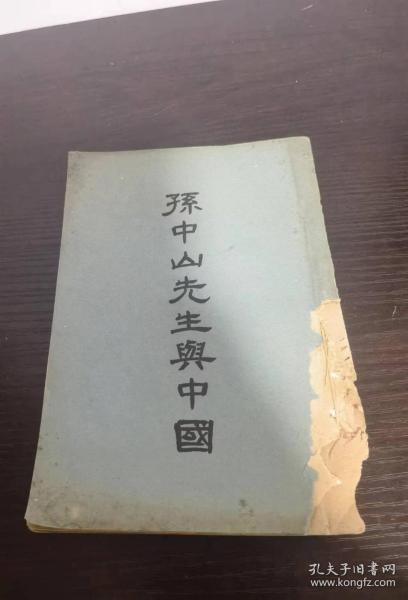 孫中山先生與中國
孔夫子旧书网
www.kongfz.com